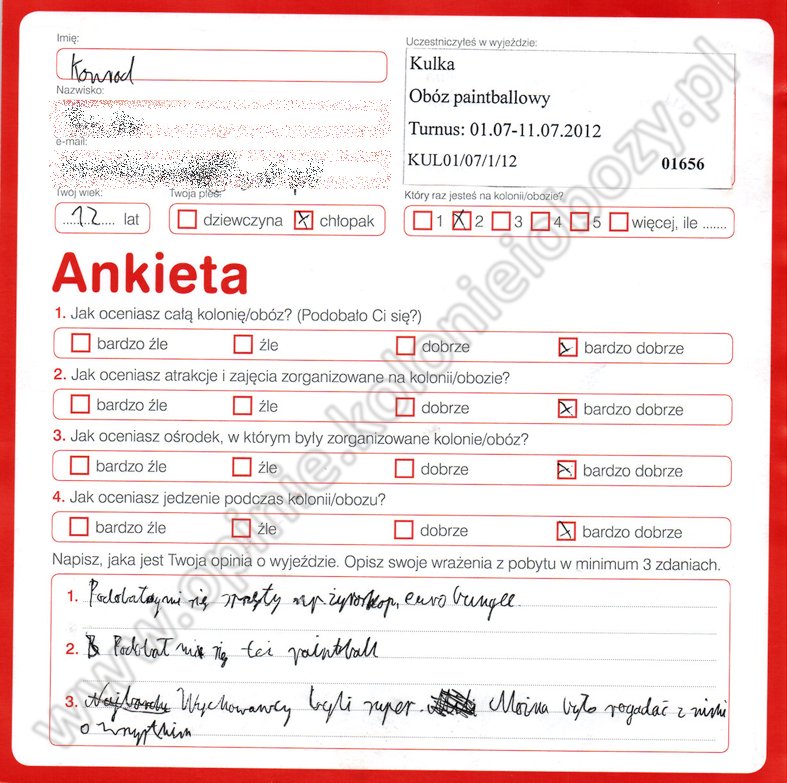 Imię:
Konrad
Nazwisko:
e-mail:
Twój wiek:
12 lat
Twoja płeć:
dziewczyna chłopak
Uczestniczyłeś w wyjeździe:
Kulka
Obóz paintballowy
Turnus: 01.07-11.07.2012
KUL01/07/1/12 01656
Który raz jesteś na kolonii/obozie?
1 2 3 4 5 więcej, ile .......
Ankieta
1. Jak oceniasz całą kolonię/obóz? (Podobało Ci się?)
bardzo źle źle dobrze bardzo dobrze
2. Jak oceniasz atrakcje i zajęcia zorganizowane na kolonii/obozie?
bardzo źle źle dobrze bardzo dobrze
3. Jak oceniasz ośrodek, w którym były zorganizowane kolonie/obóz?
bardzo źle źle dobrze bardzo dobrze
4. Jak oceniasz jedzenie podczas kolonii/obozu?
bardzo źle źle dobrze bardzo dobrze
Napisz, jaka jest Twoja opinia o wyjeździe. Opisz swoje wrażenia z pobytu w minimum 3 zdaniach.
1. się np. żyroskop, euro bungee.
2. Podobał mi się też paintball
3. Wychowawcy byli super. Można było pogadać z nimi
o wszystkim
www.opinie.kolonieiobozy.pl